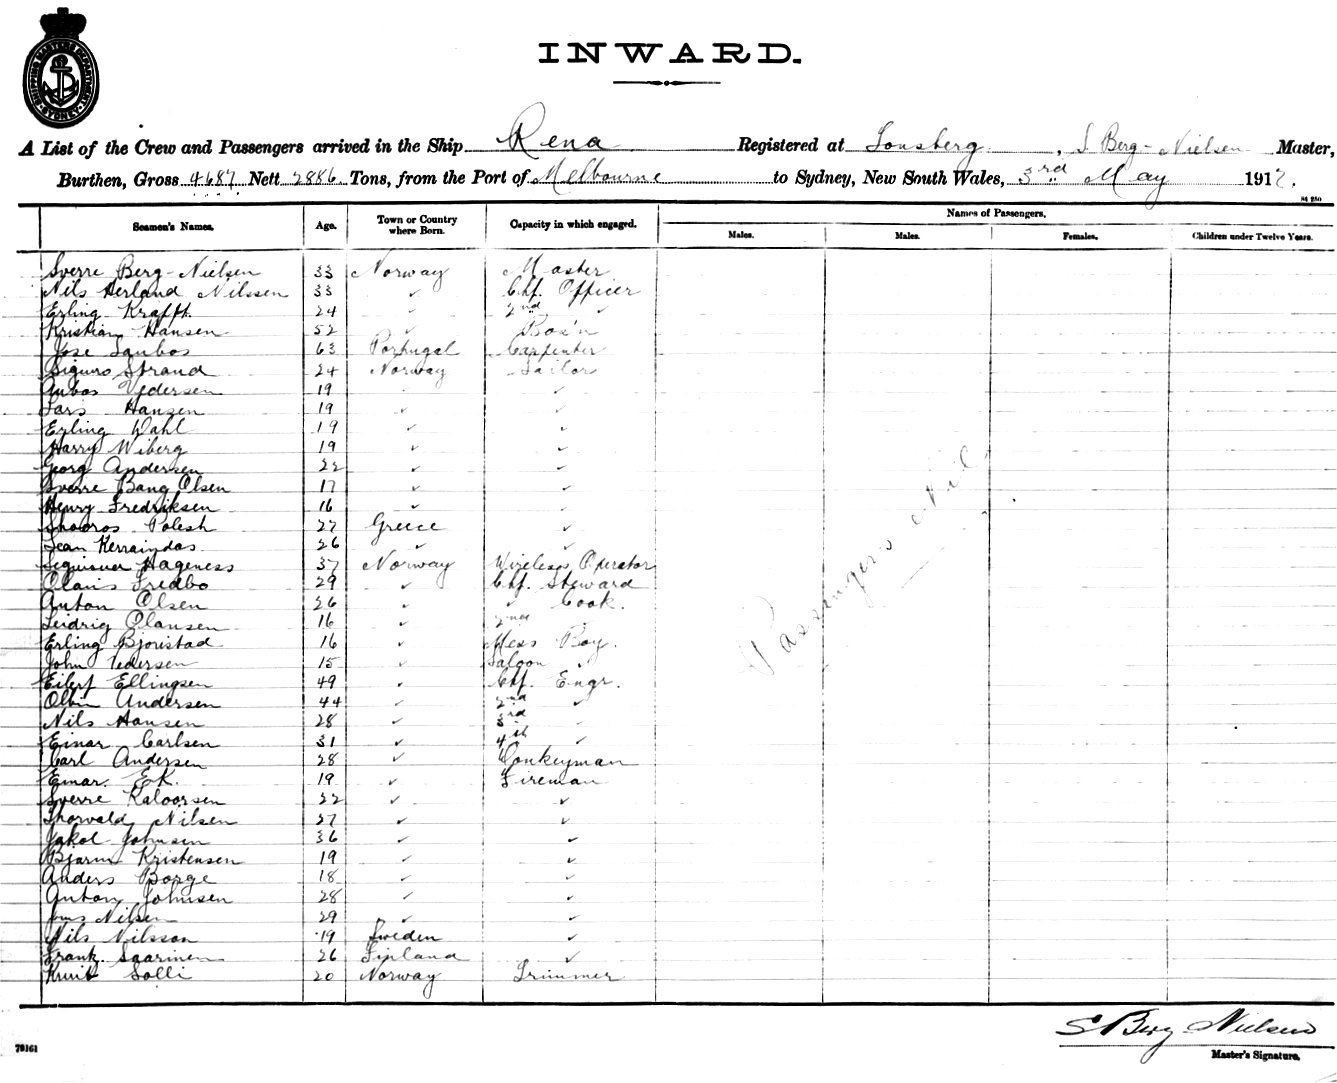 SHIPPING MASTERS DEPARTMENT
SYDNEY
INWARD.
A List of the Crew and Passengers arrived in the Ship Rena Registered at Tonsberg, S Berg-Nielsen Master,
Burthen, Gross 4687 Nett 2886 Tons, from the Port of Melbourne to Sydney, New South Wales, 3rd May 1912.
84 250
Seamen's Names. Age. Town or Country where Born. Capacity in which engaged. Names of Passengers.
Males. Males. Females. Children under Twelve Years.
Sverre Berg-Nielsen 33 Norway Master
Nils Herland Nilssen 33 ✓ Chf. Officer
Erling Krafft 24 ✓ 2nd ✓
Kristian Hansen 52 ✓ Bos'n
Jose 63 Portugal Carpenter
Strand 24 Norway Sailor
19 ✓
Lars Hansen 19 ✓ ✓
Erling Wahl 19 ✓ ✓
Harry Wiberg 19 ✓ ✓
Georg Andersen 22 ✓ ✓
Sverre Bang Olsen 17 ✓ ✓
Henry Fredriksen 16 ✓ ✓
27 Greece ✓
26 ✓ ✓
Hageness 37 Norway Wireless Operator
29 ✓ Chf. Steward
Anton Olsen 26 ✓ ✓ Cook.
16 ✓ 2nd
Erling Bjornstad 16 ✓ Mess Boy.
John Pedersen 15 ✓ Saloon ✓
Eilert Ellingsen 49 ✓ Chf. Engr.
Andersen 44 ✓ 2nd ✓
Nils Hansen 28 ✓ 3rd
Einar Carlsen 31 ✓ 4th ✓
Carl Andersen 28 ✓ Donkeyman
Einar Ek. 19 ✓ Fireman
Sverre 22 ✓ ✓
Thorvald Nilsen 27 ✓ ✓
Jakob Johnsen 36 ✓ ✓
Bjarne Kristensen 19 ✓ ✓
Anders Borge 18 ✓ ✓
Anton Johnsen 28 ✓ ✓
Jens Nilsen 29 ✓ ✓
Nils Nilsson 19 Sweden ✓
Frank Saarinen 26 Finland ✓
Knut Solli 20 Norway Trimmer
Passengers Nil
S Berg-Nielsen
Master's Signature.
79161